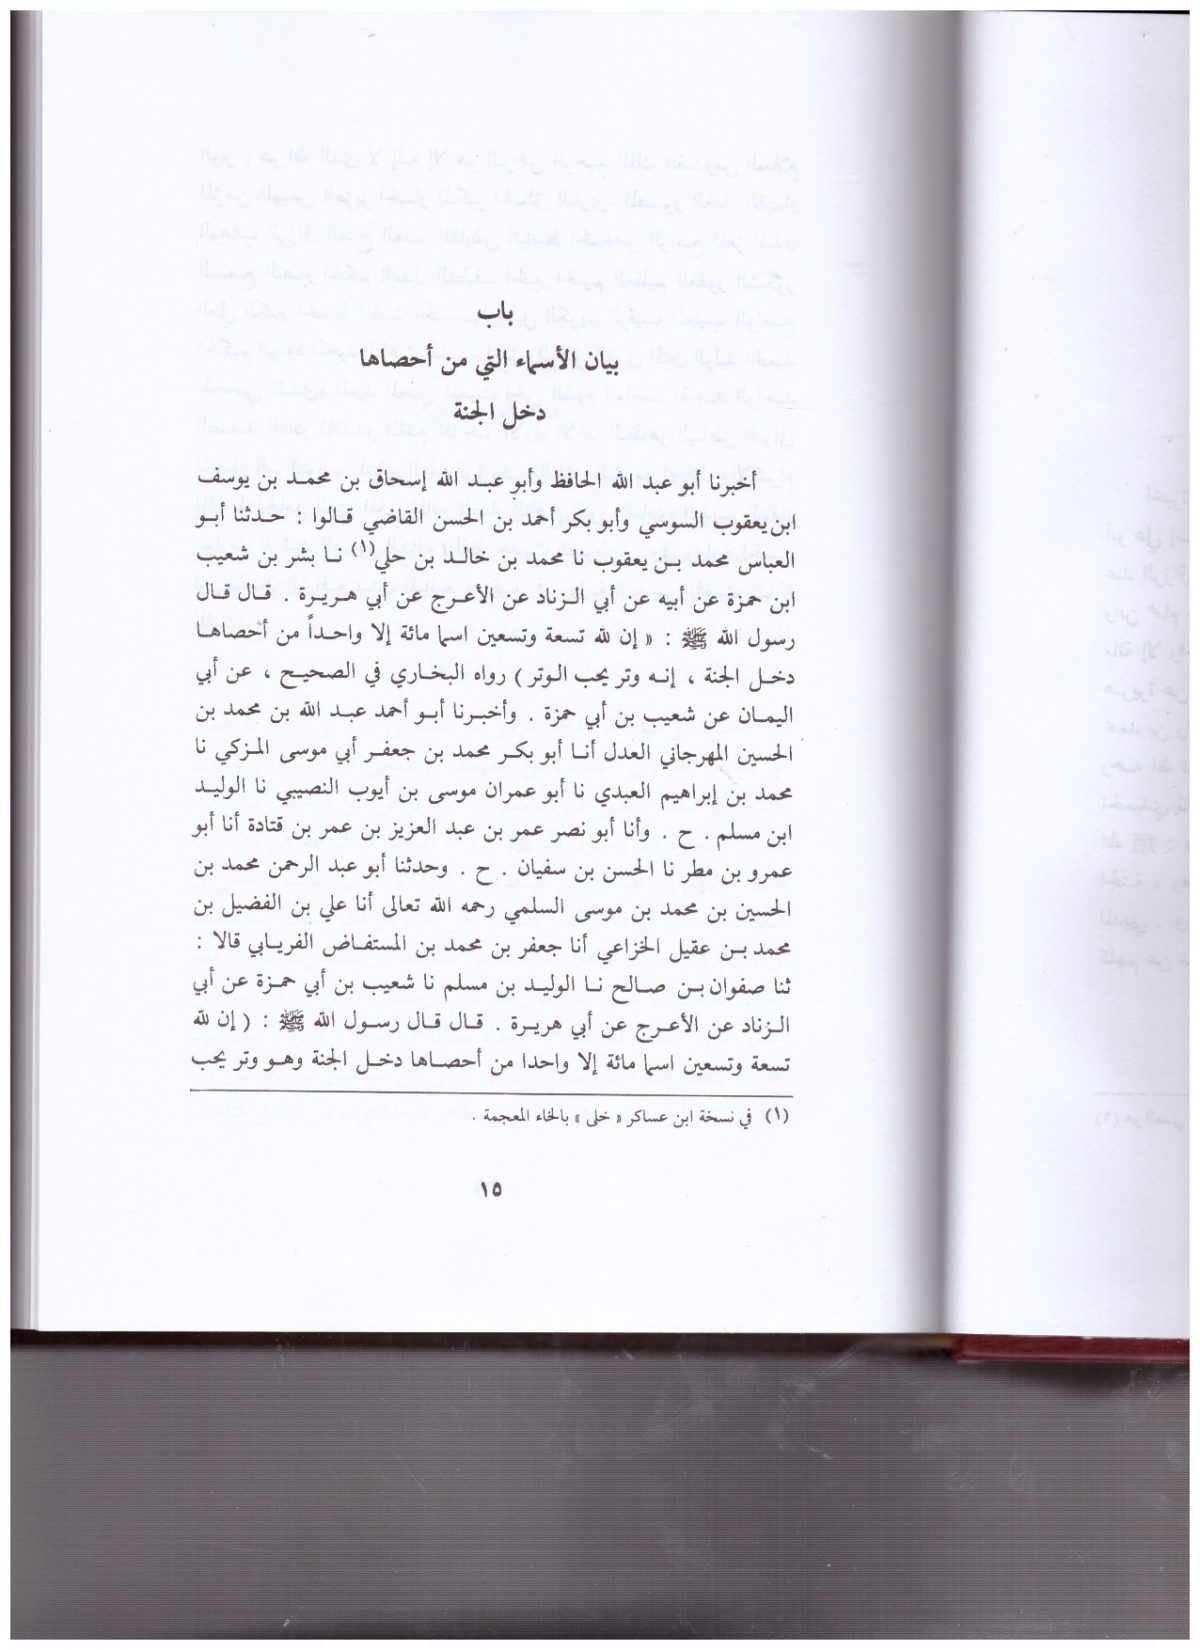 باب
بيان الأسماء التي من أحصاها
دخل الجنة
أخبرنا أبو عبد الله الحافظ وأبو عبد الله إسحاق بن محمد بن يوسف
ابن يعقوب السوسي وأبو بكر أحمد بن الحسن القاضي قالوا : حدثنا أبو
العباس محمد بن يعقوب نا محمد بن خالد بن حلي(١) نا بشر بن شعيب
ابن حمزة عن أبيه عن أبي الزناد عن الأعرج عن أبي هريرة . قال قال
رسول الله ﷺ : « إن لله تسعة وتسعين اسما مائة إلا واحداً من أحصاها
دخل الجنة ، إنه وتر يحب الوتر ) رواه البخاري في الصحيح ، عن أبي
اليمان عن شعيب بن أبي حمزة . وأخبرنا أبو أحمد عبد الله بن محمد بن
الحسين المهرجاني العدل أنا أبو بكر محمد بن جعفر أبي موسى المزكي نا
محمد بن إبراهيم العبدي نا أبو عمران موسى بن أيوب النصيبي نا الوليد
ابن مسلم . ح . وأنا أبو نصر عمر بن عبد العزيز بن عمر بن قتادة أنا أبو
عمرو بن مطر نا الحسن بن سفيان . ح . وحدثنا أبو عبد الرحمن محمد بن
الحسين بن محمد بن موسى السلمي رحمه الله تعالى أنا علي بن الفضيل بن
محمد بن عقيل الخزاعي أنا جعفر بن محمد بن المستفاض الفريابي قالا :
ثنا صفوان بن صالح نا الوليد بن مسلم نا شعيب بن أبي حمزة عن أبي
الزناد عن الأعرج عن أبي هريرة . قال قال رسول الله ﷺ : ( إن لله
تسعة وتسعين اسما مائة إلا واحدا من أحصاها دخل الجنة وهو وتر يحب
(١) في نسخة ابن عساكر « خلى » بالخاء المعجمة .
١٥